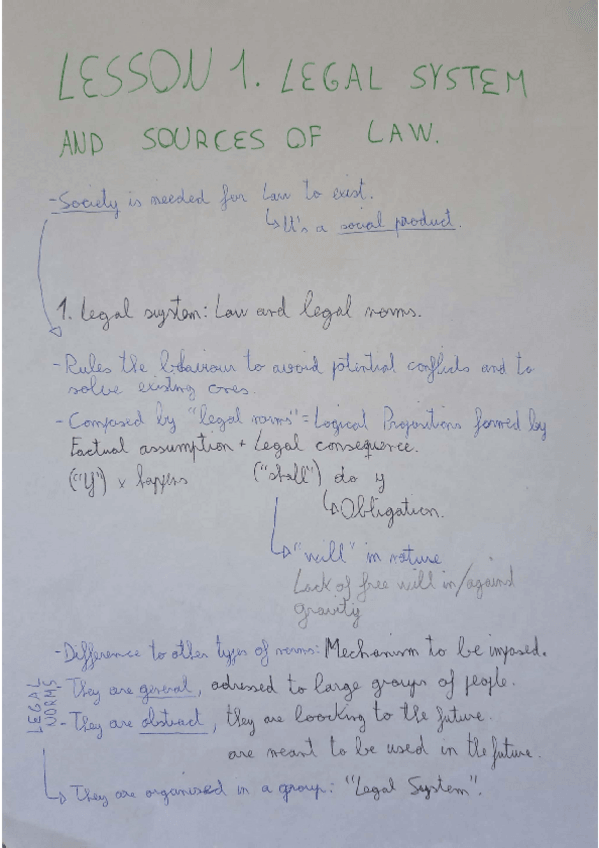 LESSON 1. LEGAL SYSTEM
AND SOURCES OF LAW.
- Society is needed for Law to exist.
↳ It's a social product.
1. Legal system: Law and legal norms.
- Rules the behaviour to avoid potential conflicts and to
solve existing ones.
- Composed by "legal norms" = Logical Propositions formed by
Factual assumption + Legal consequence.
("If") x happens ("shall") do y
↳ Obligation.
↳ "will" in nature
Lack of free will in/against
gravity
- Difference to other types of norms: Mechanism to be imposed.
LEGAL NORMS
- They are general, adressed to large groups of people.
- They are abstract, they are loocking to the future.
are meant to be used in the future.
↳ They are organised in a group: "Legal System".